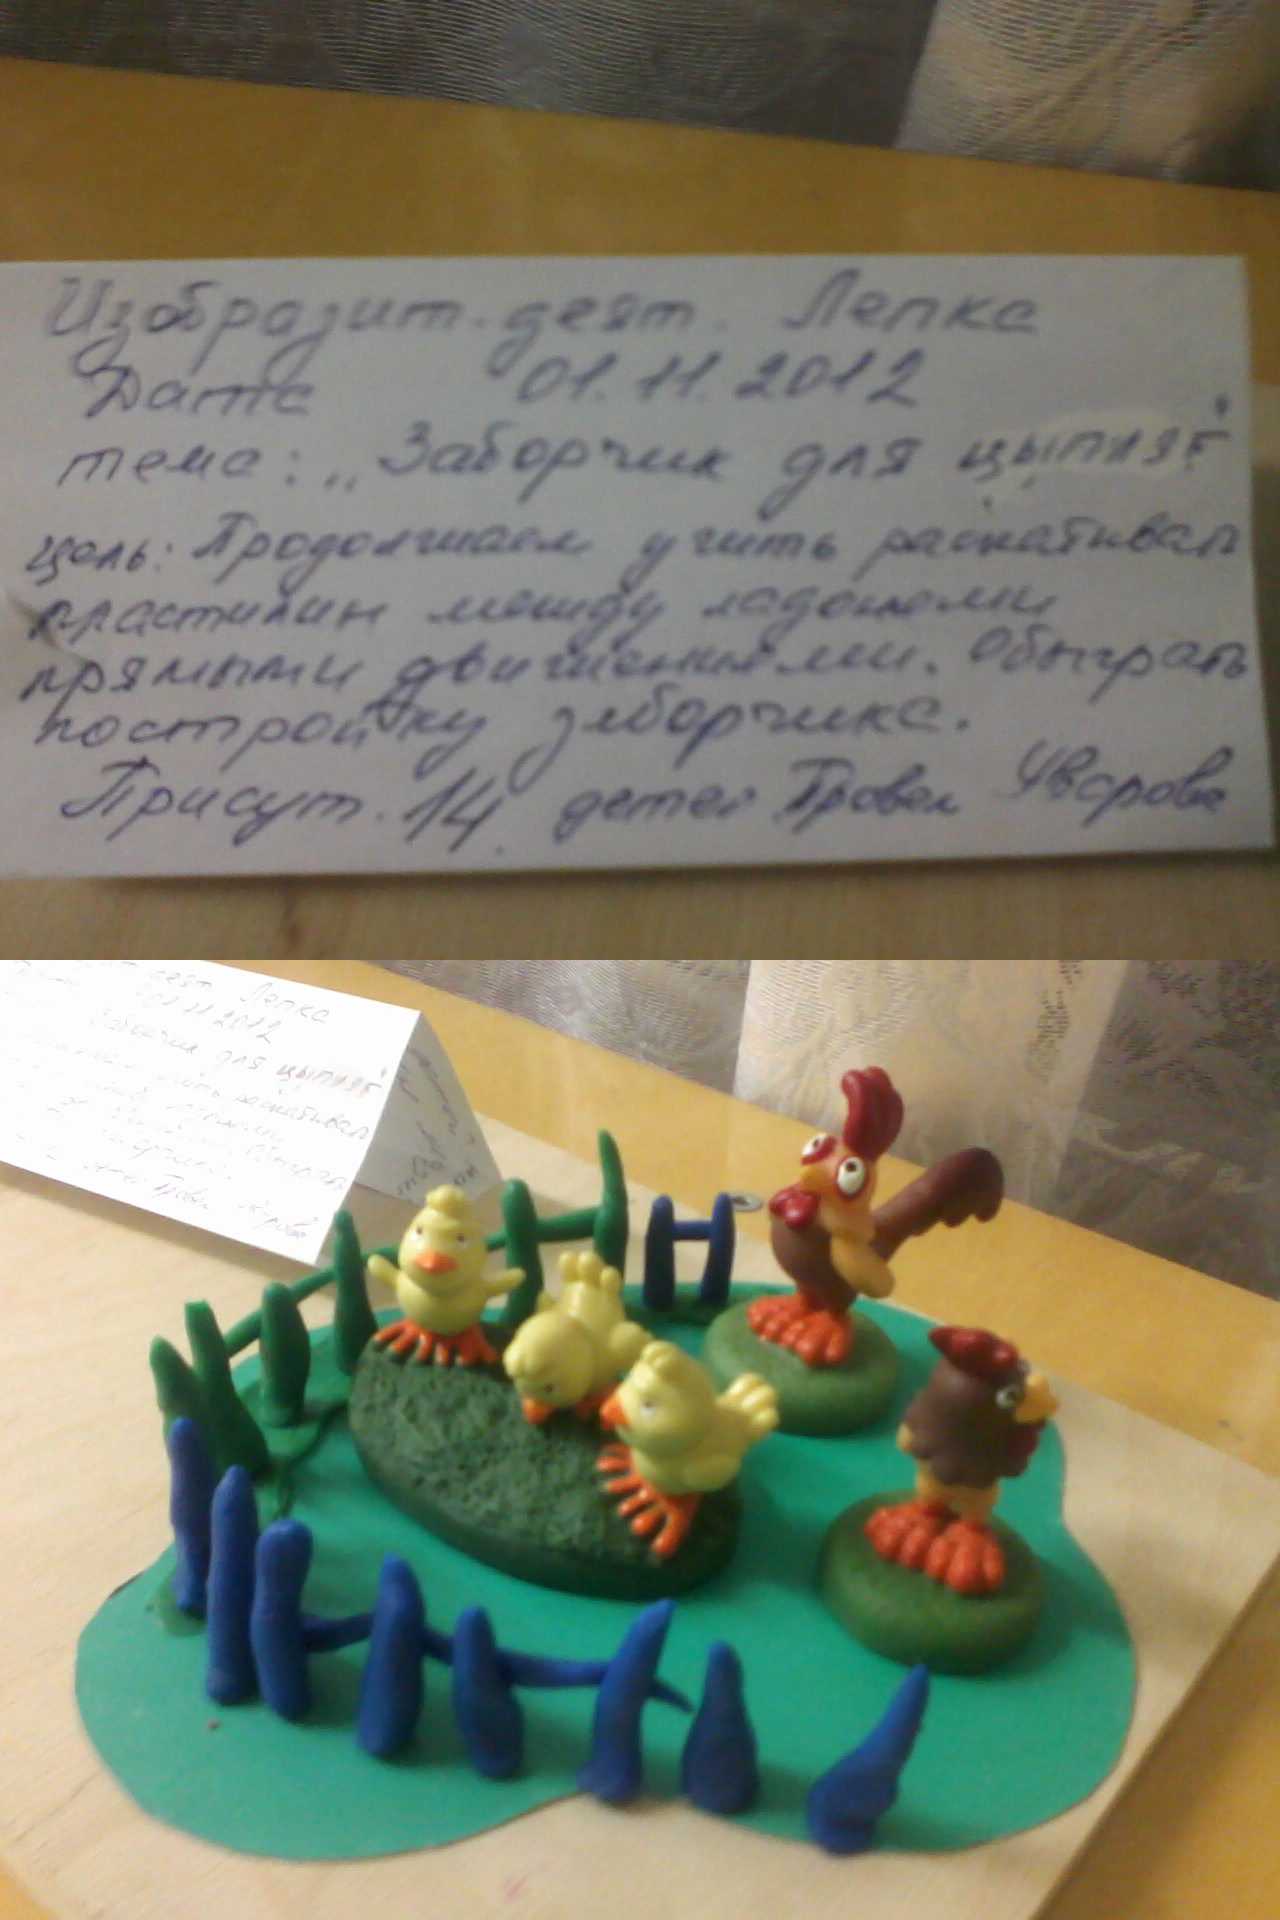 Изобразит. деят. Лепка
Дата 01.11.2012
тема: „Заборчик для цыплят"
цель: Продолжаем учить раскатыват
пластилин между ладонями
прямыми движениями. Обыграть
постройку заборчика.
Присут. 14. детей Провел Уварова
деят Лепка
01.11.2012
Заборчик для цыплят"
учить раскатыват
Обыграть
детей Провел